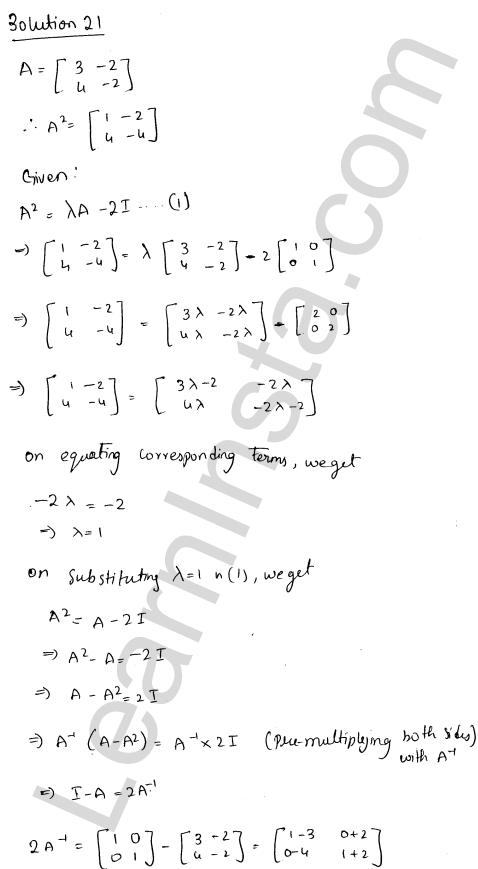 Solution 21
A = [ 3 -2 ; 4 -2 ]
∴ A² = [ 1 -2 ; 4 -4 ]
Given:
A² = λA - 2I .... (1)
⇒) [ 1 -2 ; 4 -4 ] = λ [ 3 -2 ; 4 -2 ] - 2 [ 1 0 ; 0 1 ]
⇒) [ 1 -2 ; 4 -4 ] = [ 3λ -2λ ; 4λ -2λ ] - [ 2 0 ; 0 2 ]
⇒) [ 1 -2 ; 4 -4 ] = [ 3λ-2 -2λ ; 4λ -2λ-2 ]
on equating corresponding terms, we get
-2λ = -2
⇒) λ=1
on substituting λ=1 n (1), we get
A² = A - 2I
⇒) A² - A = -2I
⇒) A - A² = 2I
⇒) A⁻¹ (A-A²) = A⁻¹ × 2I (pre-multiplying both sides) with A⁻¹
⇒) I - A = 2A⁻¹
2A⁻¹ = [ 1 0 ; 0 1 ] - [ 3 -2 ; 4 -2 ] = [ 1-3 0+2 ; 0-4 1+2 ]
LearnInsta.com